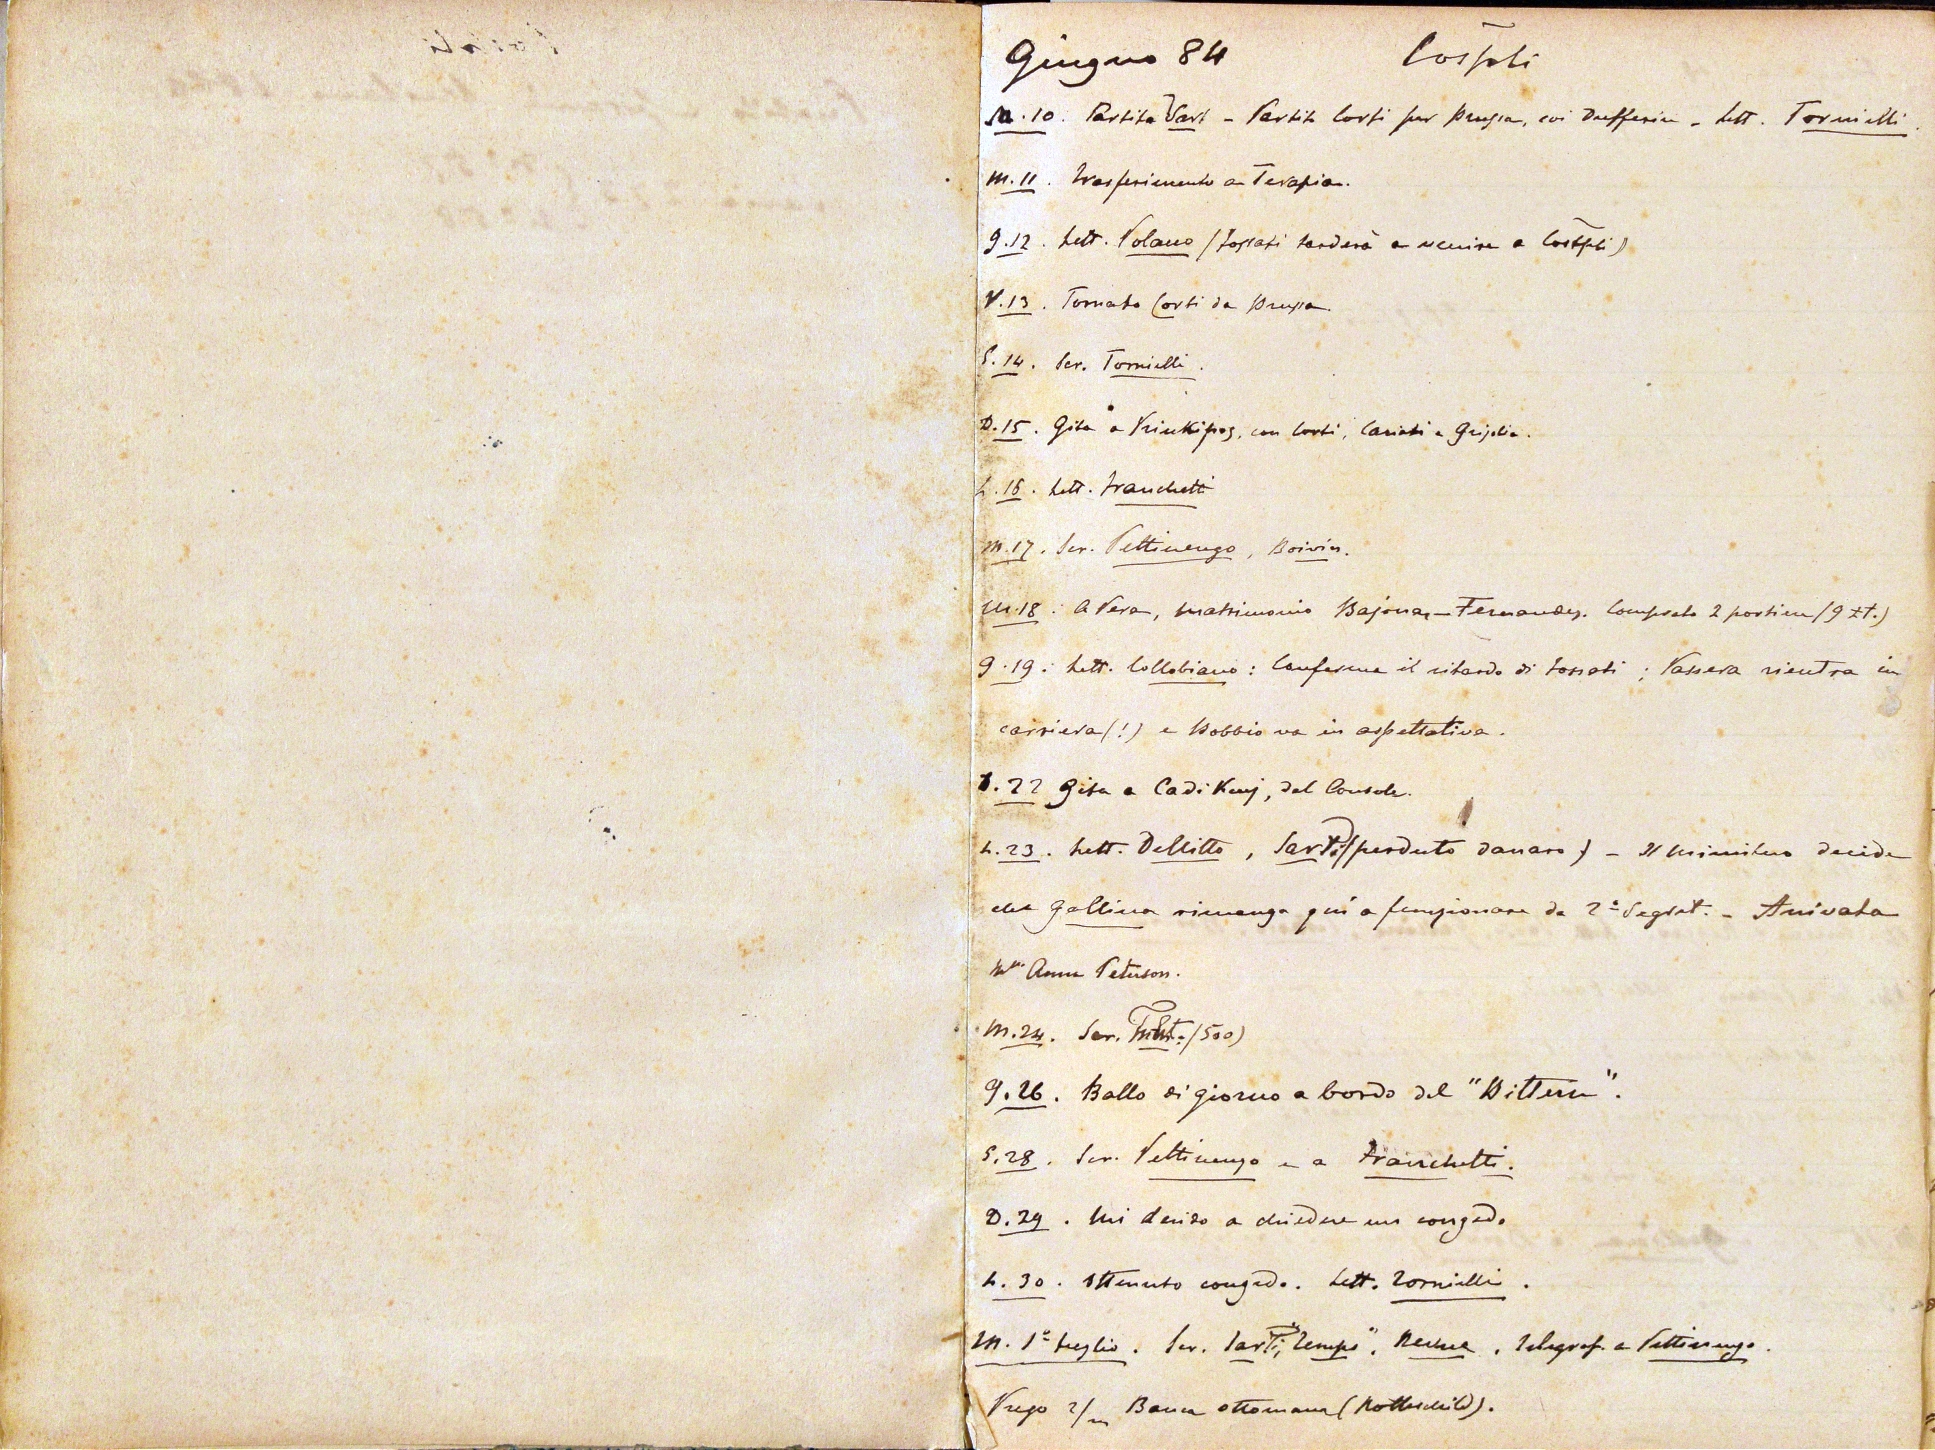 Giugno 84 Costpli
M. 10. Partita Sart - Partito Corti per Brussa, coi Dufferin - Lett. Tornielli.
M. 11. Trasferimento a Terapia.
G. 12. Lett. Volano (Fossati tarderà a venire a Costpli)
V. 13. Tornato Corti da Brussa.
S. 14. Scr. Tornielli.
D. 15. Gita a Prinkipos, con Corti, Cariati e
L. 16. Lett. Franchetti
M. 17. Scr. Pettinengo, Boivin.
M. 18. A Pera, matrimonio Fernandez. Comprato 2 portiere (9 Lt.)
G. 19. Lett. Collobiano: Conferma il ritardo di Fossati; Passera rientra in
carriera (!) e Bobbio va in aspettativa.
D. 22 Gita a Cadi Keuj, dal Console.
L. 23. Lett. Dellitto, Sarti (perduto danaro) - Il ministro decide
che Gallina rimanga qui a funzionare da 2° Segret. - Arrivata
Anna Peterson.
M. 24. Scr. (500)
G. 26. Ballo di giorno a bordo del "Bittern".
S. 28. Scr. Pettinengo e a Franchetti.
D. 29. Mi deciso a chiedere un congedo
L. 30. Ottenuto congedo. Lett. Tornielli.
M. 1° Luglio. Scr. Sarti, "Tempo", telegraf. a Pettinengo.
Banca ottomana (Rothschild).